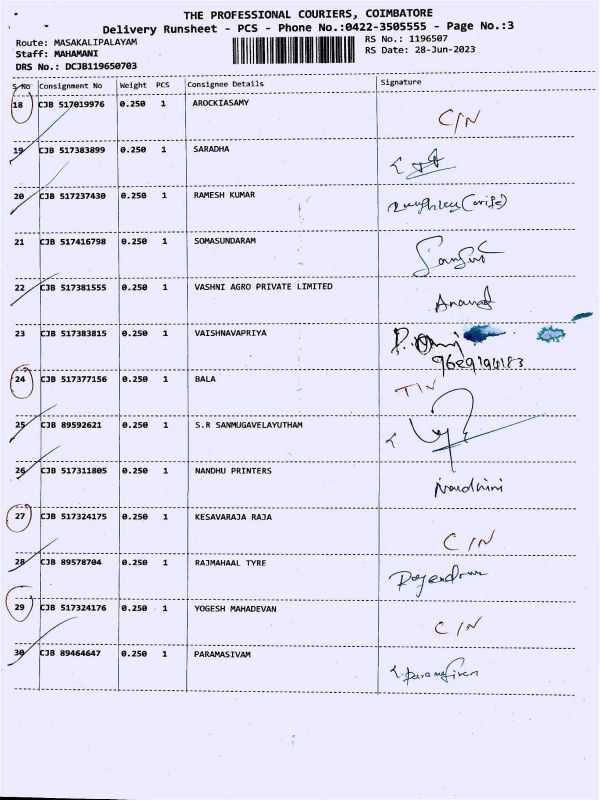 THE PROFESSIONAL COURIERS, COIMBATORE
Delivery Runsheet - PCS - Phone No.:0422-3505555 - Page No.:3
Route: MASAKALIPALAYAM RS No.: 1196507
Staff: MAHAMANI RS Date: 28-Jun-2023
DRS No.: DCJB119650703
S.No Consignment No Weight PCS Consignee Details Signature
18 CJB 517019976 0.250 1 AROCKIASAMY
C/N
19 CJB 517383899 0.250 1 SARADHA
20 CJB 517237430 0.250 1 RAMESH KUMAR
21 CJB 517416798 0.250 1 SOMASUNDARAM
22 CJB 517381555 0.250 1 VASHNI AGRO PRIVATE LIMITED
Anand
23 CJB 517383815 0.250 1 VAISHNAVAPRIYA
24 CJB 517377156 0.250 1 BALA
25 CJB 89592621 0.250 1 S.R SANMUGAVELAYUTHAM
26 CJB 517311805 0.250 1 NANDHU PRINTERS
Nandhini
27 CJB 517324175 0.250 1 KESAVARAJA RAJA
C/N
28 CJB 89578704 0.250 1 RAJMAHAAL TYRE
Rajendran
29 CJB 517324176 0.250 1 YOGESH MAHADEVAN
C/N
30 CJB 89464647 0.250 1 PARAMASIVAM